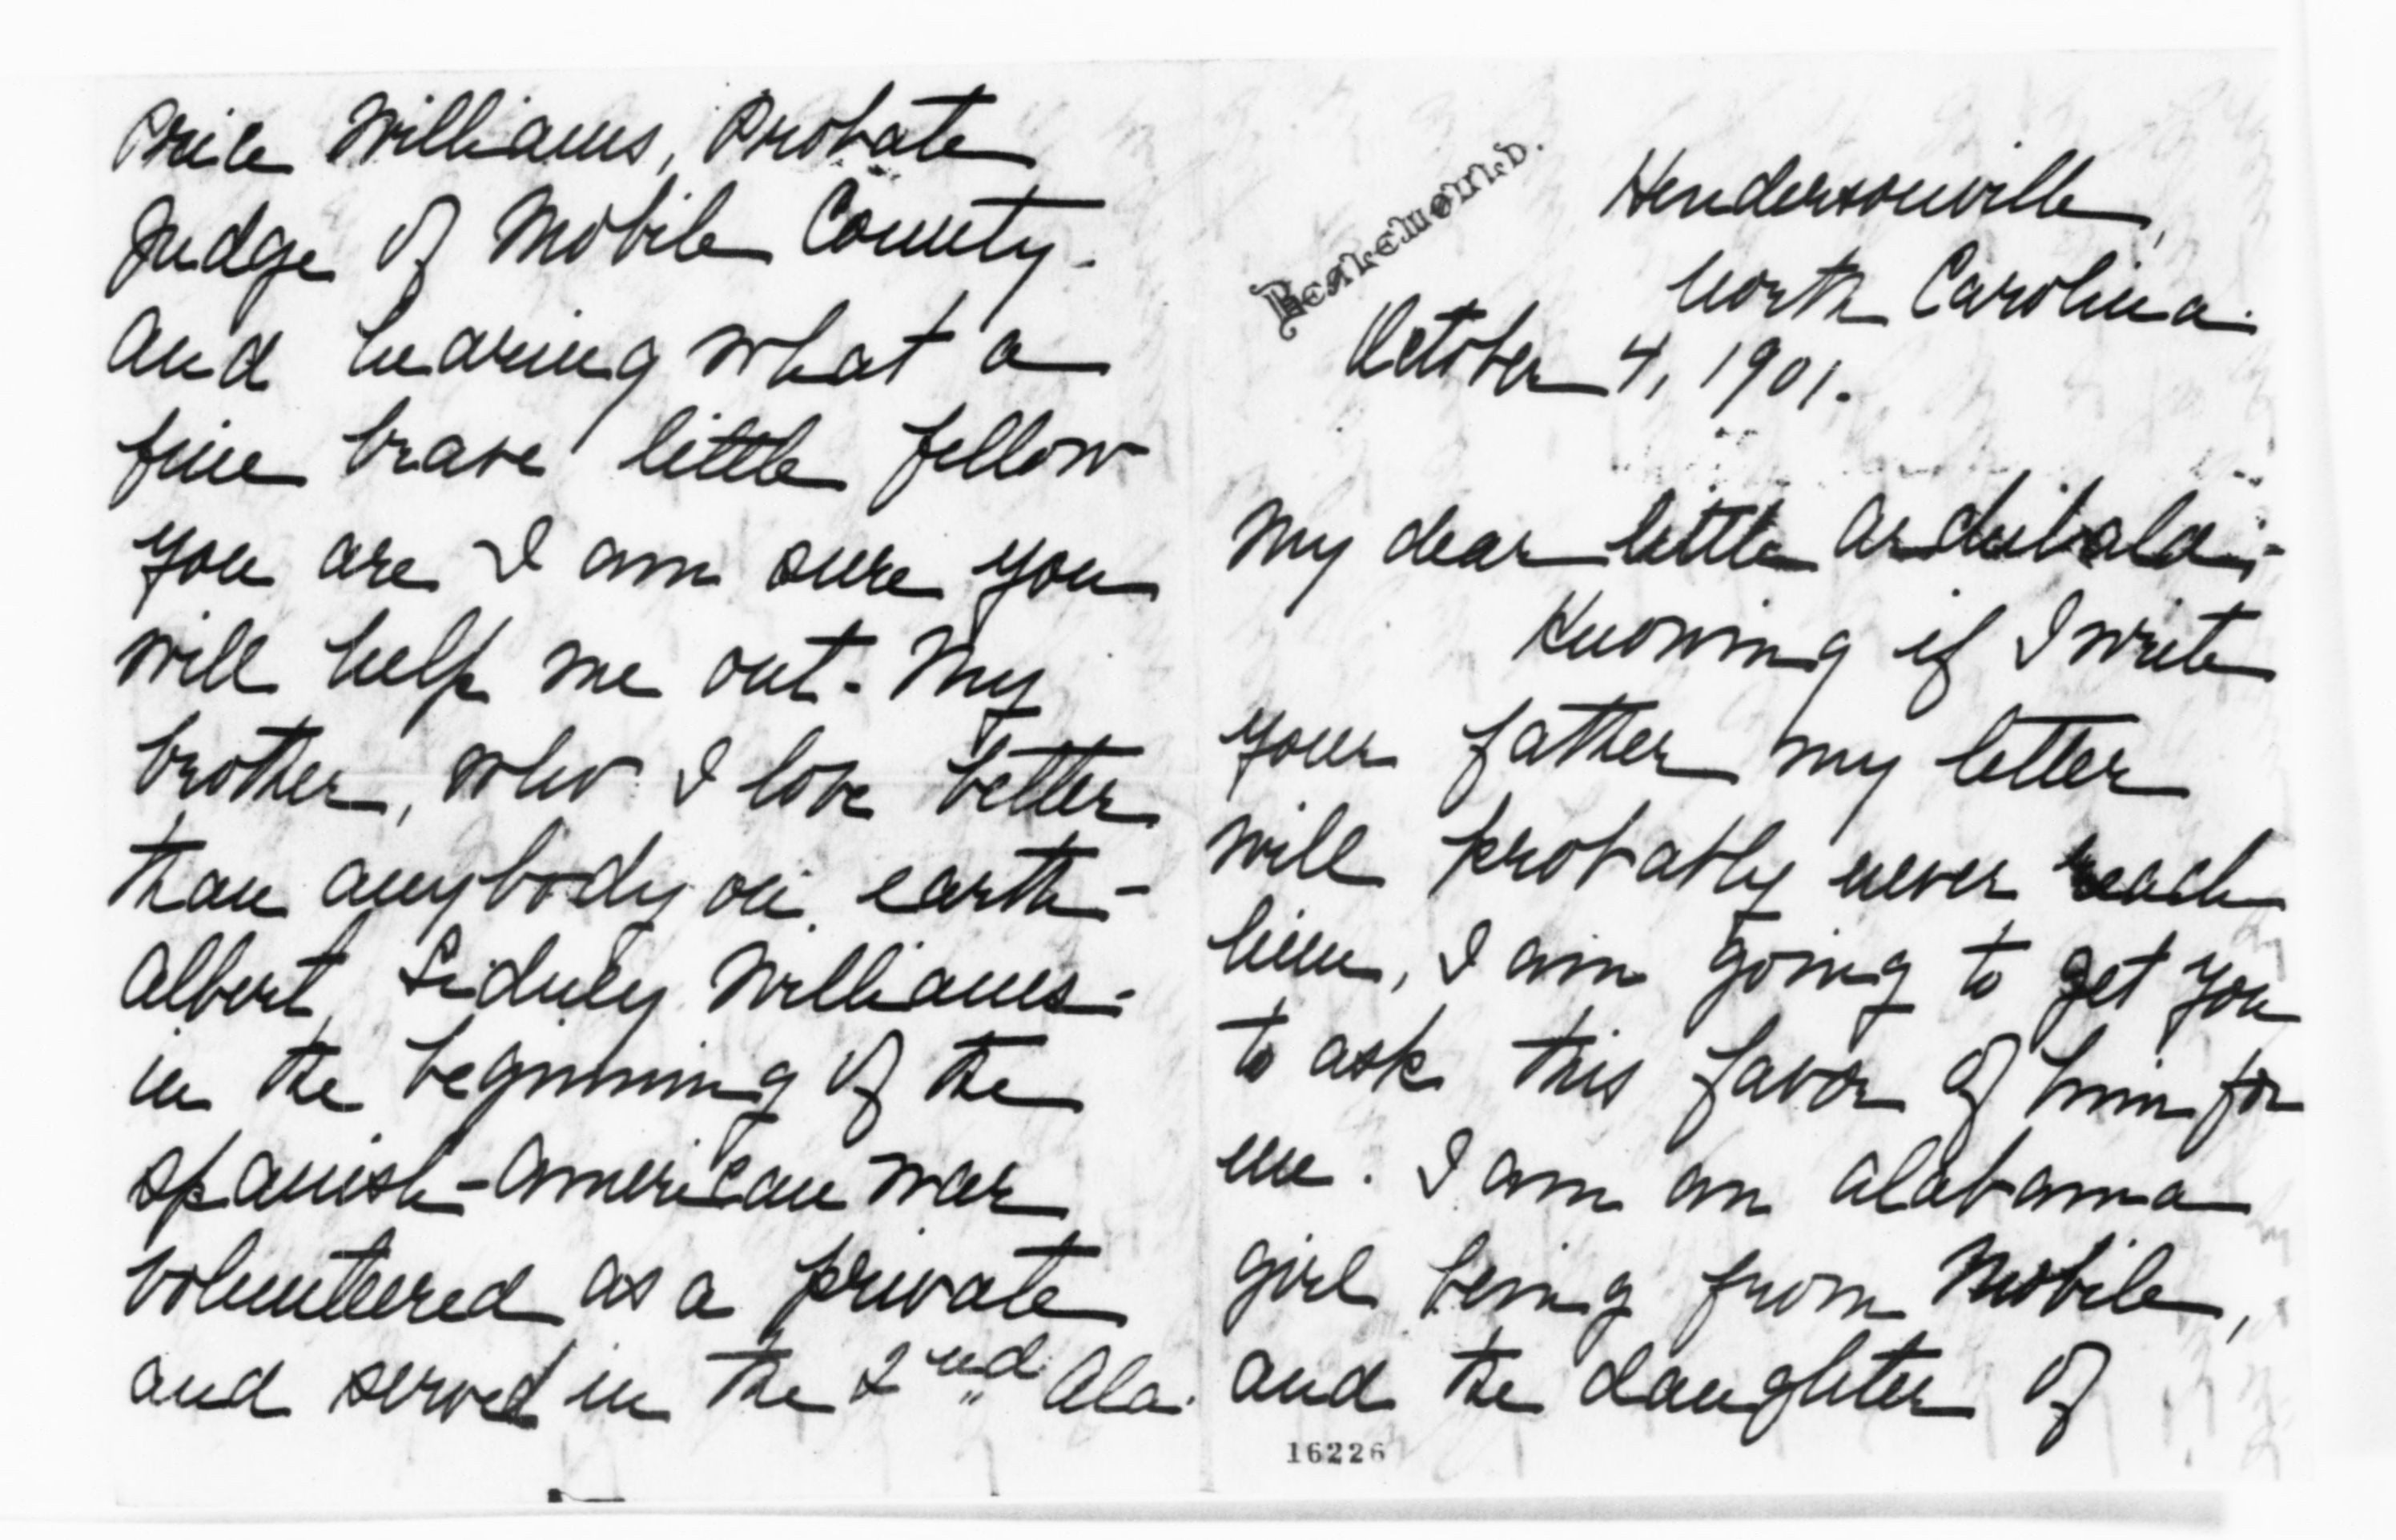 Hendersonville,
North Carolina.
October 4, 1901.
My dear little Archibald;-
Knowing if I write
your father my letter
will probably never reach
him, I am going to get you
to ask this favor of him for
me. I am an Alabama
girl being from Mobile,
and the daughter of
16226
Price Williams, Probate
Judge of Mobile County.
And hearing what a
fine brave little fellow
you are I am sure you
will help me out. My
brother, who I love better
than anybody on earth-
Albert Sidney Williams-
in the beginning of the
Spanish-American war
volunteered as a private
and served in the 2nd Ala.